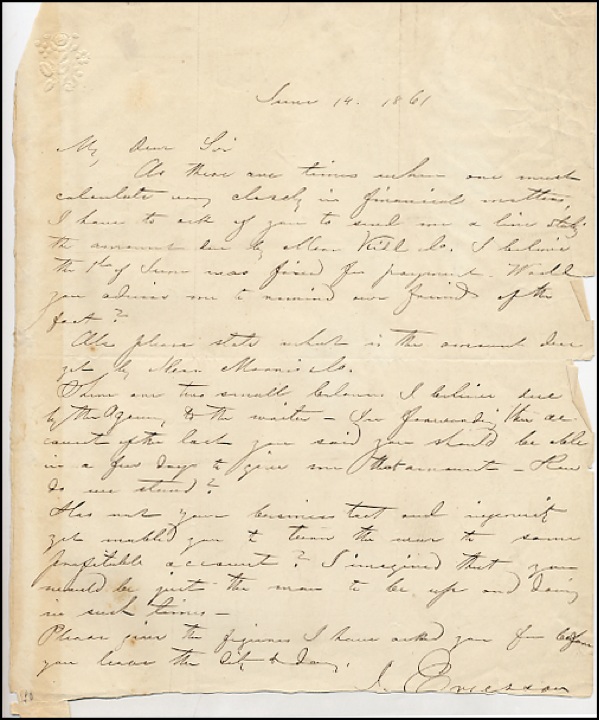 June 14. 1861
My Dear Sir
As there are times when one must
calculate very closely in financial matters,
I have to ask of you to send me a line stating
the amount due by Mess Co. I believe
the 1st of June was fixed for payment. Would
you advise me to remind our friends of the
fact?
Also please state what is the amount due
yet by Mess Co.
There are two small balances I believe due
by the Agency to the writer – In forwarding the ac
count of the last you said you should be able
in a few days to give me that amount – How
do we stand?
Has not your business tact and ingenuity
yet enabled you to turn the war to some
profitable account? I imagined that you
would be just the man to be up and doing
in such times –
Please give the figures I have asked you for before
you leave the City to day.
J. Ericsson